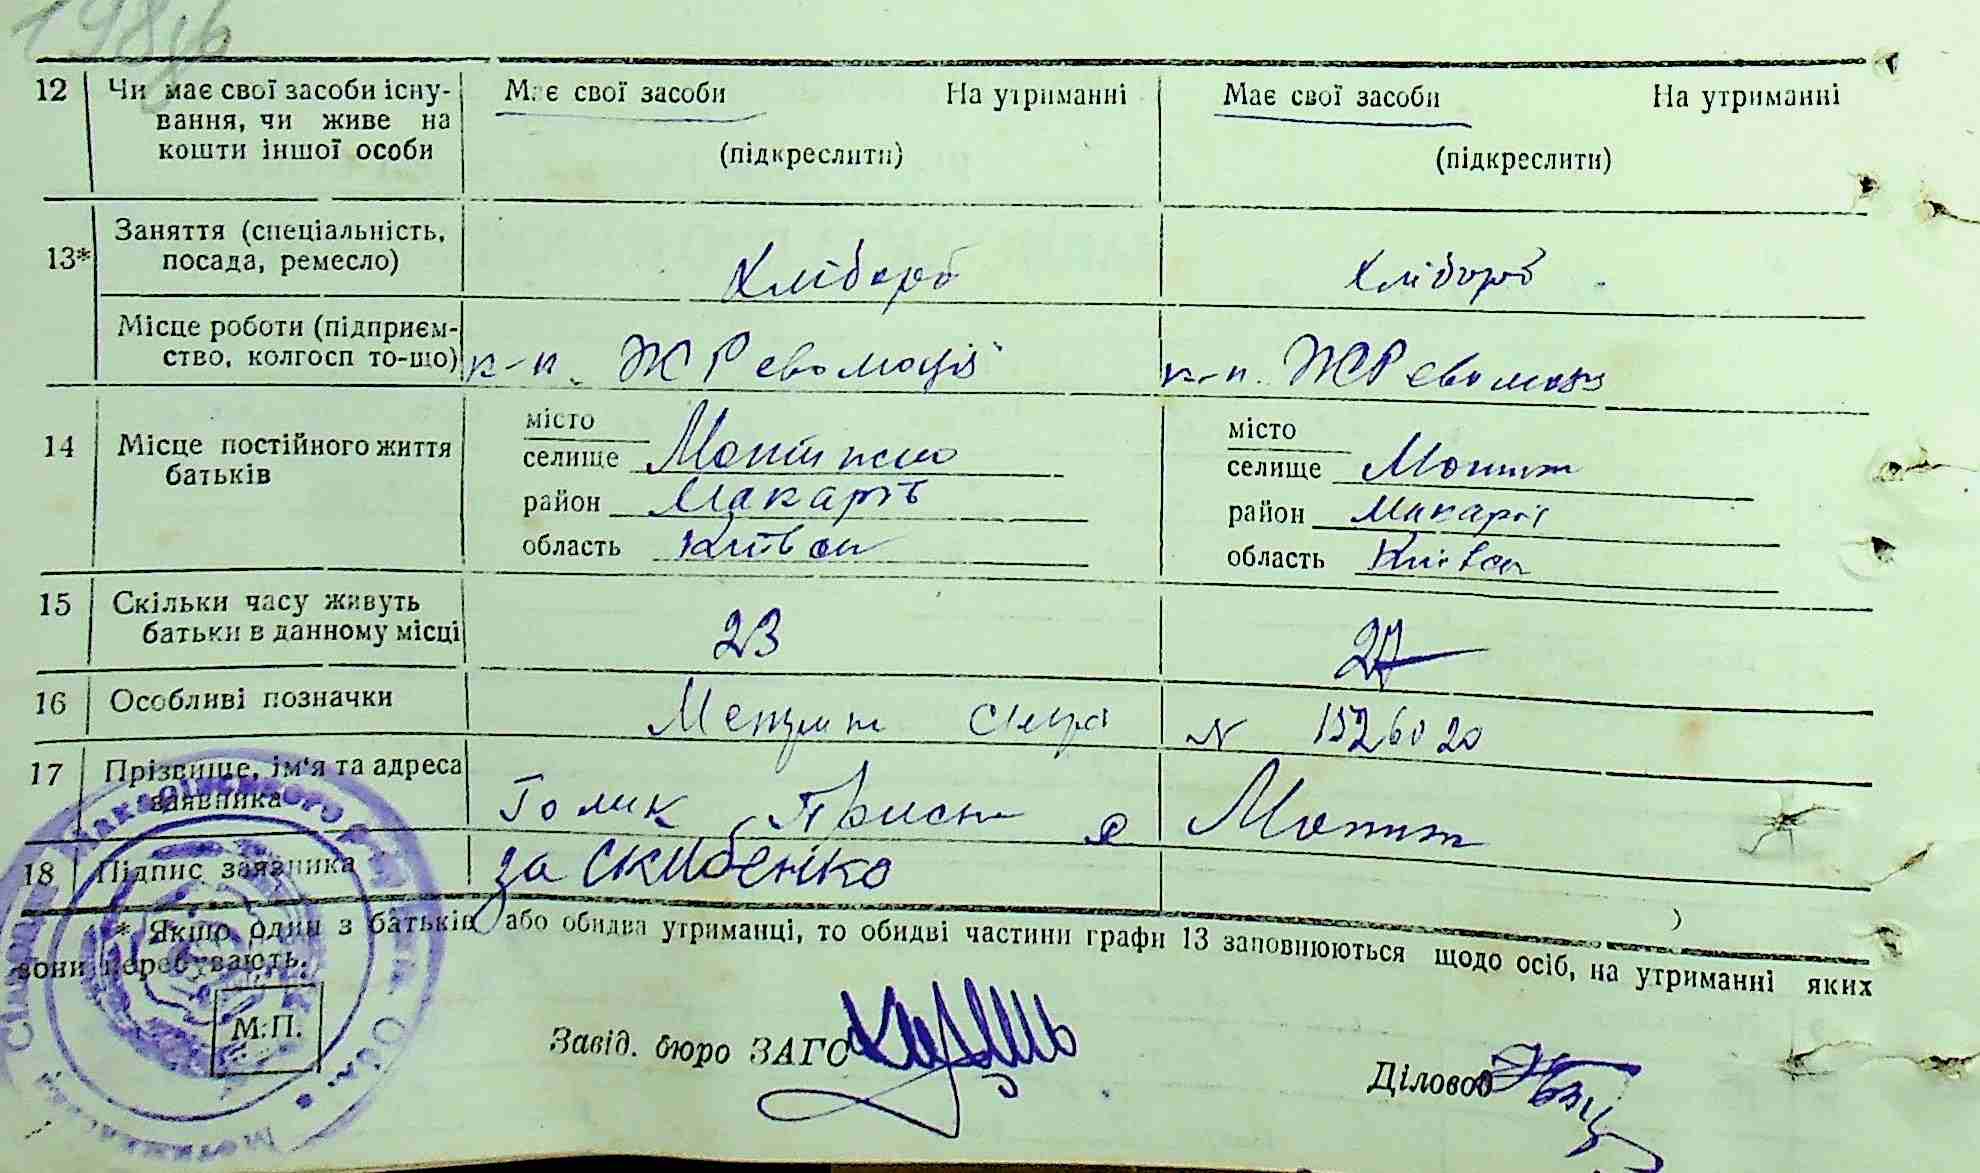 198
12 Чи має свої засоби існу- Має свої засоби На утриманні Має свої засоби На утриманні
вання, чи живе на
кошти іншої особи (підкреслити) (підкреслити)
13* Заняття (спеціальність,
посада, ремесло) Хлібороб Хлібороб
Місце роботи (підприєм-
ство, колгосп то-що) к-п. ЖРеволюція к-п. ЖРеволюція
14 Місце постійного життя
батьків
місто місто
селище Мотижин селище Мотиж
район Макарів район Макарів
область Київськ область Київськ
15 Скільки часу живуть
батьки в данному місці 23 27
16 Особливі позначки N 1526020
17 Прізвище, ім'я та адреса
заявника Голик с Мотиж
18 Підпис заявника за Скибенко
* Якщо один з батьків або обидва утриманці, то обидві частини графи 13 заповнюються щодо осіб, на утриманні яких
вони перебувають.
М.П.
Завід. бюро ЗАГС
Діловод